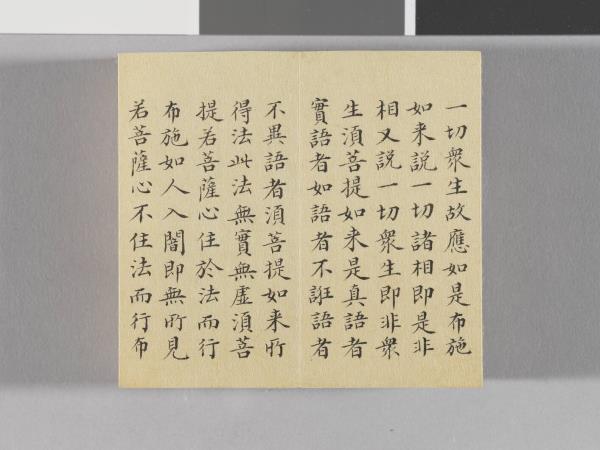 一切衆生故應如是布施
如来說一切諸相即是非
相又說一切衆生即非衆
生湏菩提如来是真語者
實語者如語者不誑語者
不異語者湏菩提如来所
得法此法無實無虛湏菩
提若菩薩心住於法而行
布施如人入闇即無所見
若菩薩心不住法而行布